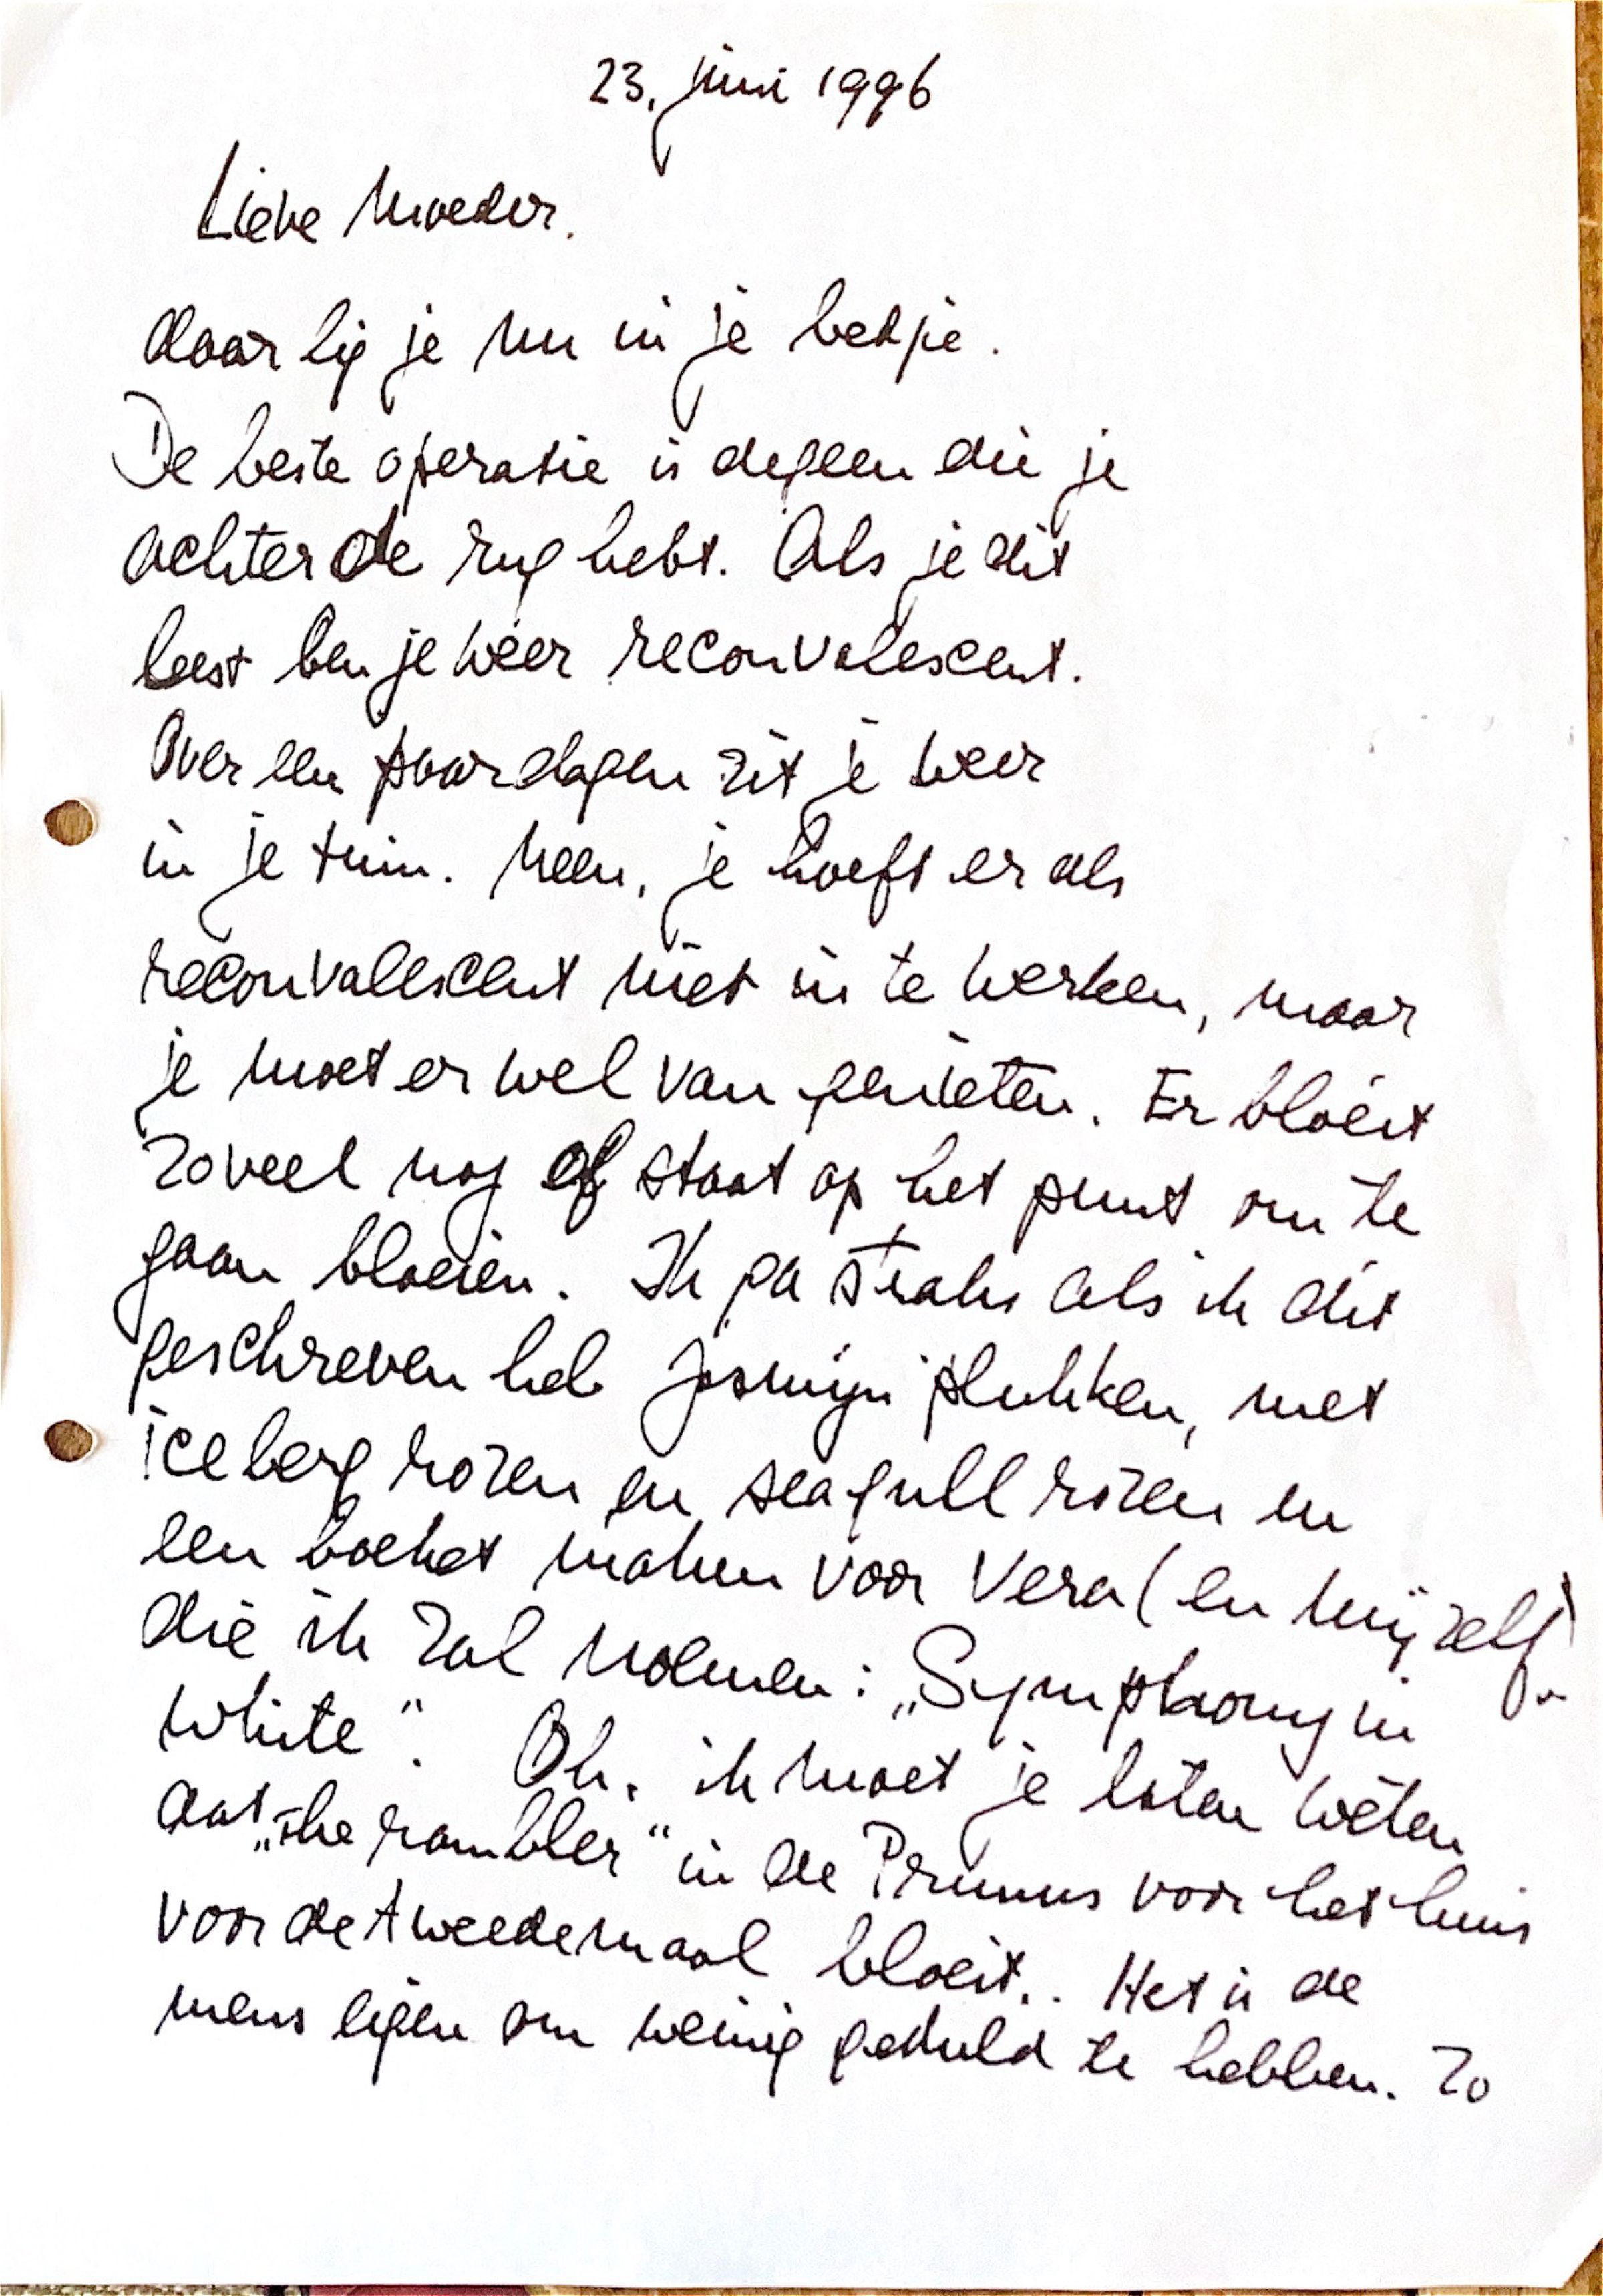 23. juni 1996
Lieve Moeder.
daar lig je nu in je bedje.
De beste operatie is degeen die je
achter de rug hebt. Als je dit
leest ben je weer reconvalescent.
Over een paar dagen zit je weer
in je tuin. Neen, je hoeft er als
reconvalescent niet in te werken, maar
je moet er wel van genieten. Er bloeit
zoveel nog of staat op het punt om te
gaan bloeien. Ik ga straks als ik dit
geschreven heb Jasmijn plukken, met
iceberg rozen en seagull rozen en
een boeket maken voor Vera (en mijzelf)
die ik zal noemen: „Symphony in
white". Oh, ik moet je laten weten
dat „the rambler" in de Prunus voor het huis
voor de tweede maal bloeit.. Het is de
mens eigen om weinig geduld te hebben. Zo